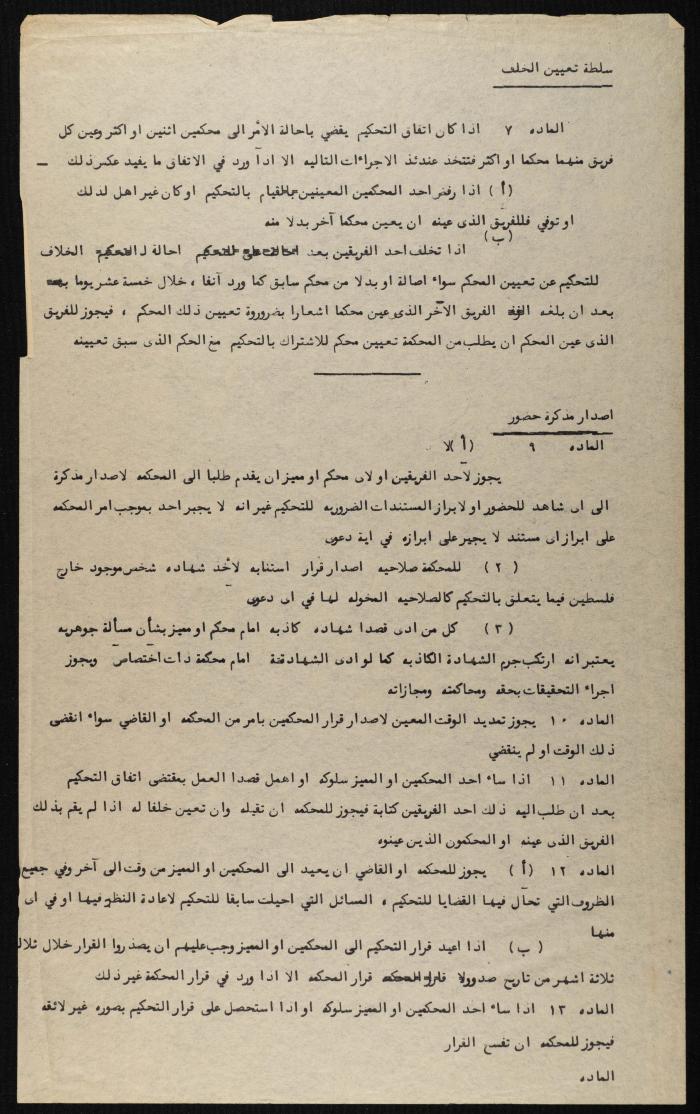 سلطة تعيين الخلف
الماده ٧ اذا كان اتفاق التحكيم يقضي باحالة الأمر الى محكمين اثنين او اكثر وعين كل
فريق منهما محكما او اكثر فتتخد عندئذ الاجراءات التاليه الا اذآ ورد في الاتفاق ما يفيد عكس ذلك —
(أ) اذا رفض احد المحكمين المعينين بالقيام بالتحكيم او كان غير اهل لذلك
او توفي فللفريق الذى عينه ان يعين محكما آخر بدلا منه
(ب) اذا تخلف احد الفريقين بعد احالة لـ الخلاف
للتحكيم عن تعيين المحكم سواء اصالة او بدلا من محكم سابق كما ورد آنفا ، خلال خمسة عشر يوما
بعد ان بلغه الفريق الآخر الذى عين محكما اشعارا بضروروة تعيين ذلك المحكم ، فيجوز للفريق
الذى عين المحكم ان يطلب من المحكمة تعيين محكم للاشتراك بالتحكيم مع الحكم الذى سبق تعيينه
اصدار مذكرة حضور
الماده ٩ (أ) لا
يجوز لأحد الفريقين او لاى محكم او مميز ان يقدم طلبا الى المحكمه لاصدار مذكرة
الى اى شاهد للحضور او لابراز المستندات الضروريه للتحكيم غير انه لا يجبر احد بموجب امر المحكمه
على ابراز اى مستند لا يجبر على ابرازه في اية دعوى
(٢) للمحكمة صلاحيه اصدار قرار استنابه لأخذ شهاده شخص موجود خارج
فلسطين فيما يتعلق بالتحكيم كالصلاحيه المخوله لها في اى دعوى
(٣) كل من ادى قصدا شهاده كاذبه امام محكم او مميز بشأن مسألة جوهريه
يعتبر انه ارتكب جرم الشهادة الكاذبه كما لو ادى الشهادة امام محكمة ذات اختصاص ويجوز
اجراء التحقيقات بحقه ومحاكمته ومجازاته
الماده ١٠ يجوز تمديد الوقت المعين لاصدار قرار المحكمين بامر من المحكمه او القاضي سواء انقضى
ذلك الوقت او لم ينقضي
الماده ١١ اذا ساء احد المحكمين او المميز سلوكه او اهمل قصدا العمل بمقتضى اتفاق التحكيم
بعد ان طلب اليه ذلك احد الفريقين كتابة فيجوز للمحكمه ان تقيله وان تعين خلفا له اذا لم يقم بذلك
الفريق الذى عينه او المحكمون الذين عينوه
الماده ١٢ (أ) يجوز للمحكمه او القاضي ان يعيد الى المحكمين او المميز من وقت الى آخر وفي جميع
الظروف التي تحال فيها القضايا للتحكيم ، المسائل التي احيلت سابقا للتحكيم لاعادة النظر فيها او في اى
منها
(ب) اذا اعيد قرار التحكيم الى المحكمين او المميز وجب عليهم ان يصدروا القرار خلال ثلاث
ثلاثة اشهر من تاريح صدور قرار المحكمه الا اذا ورد في قرار المحكمة غير ذلك
الماده ١٣ اذا ساء احد المحكمين او المميز سلوكه او اذا استحصل على قرار التحكيم بصوره غير لائقه
فيجوز للمحكمه ان تفسح القرار
الماده